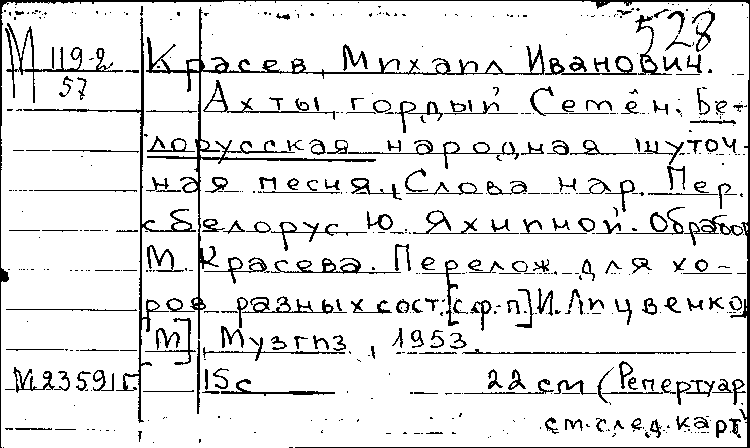 528
М 119-2
57
Красев, Михаил Иванович.
Ах ты, гордый Семён. Бе-
лорусская народная шуточ-
ная песня. Слова нар. Пер.
с белорус. Ю Яхниной. Обработ
М Красева. Перелож. для хо-
ров разных сост. [с ф-п] И. Лицвенко
[М], Музгиз, 1953.
М 23591г. 15 с 22 см (Репертуар
см. след. карт